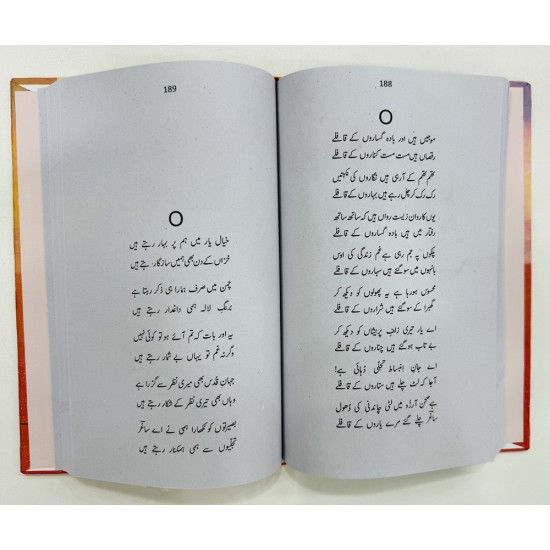 188
O
موجیں ہیں اور بادہ گساروں کے قافلے
رقصاں ہیں مست مست کناروں کے قافلے
تھم تھم کے آ رہی ہیں نگاروں کی نکہتیں
رک رک کر چل رہے ہیں بہاروں کے قافلے
یوں کاروانِ زیست رواں ہیں کہ ساتھ ساتھ
رفتار میں ہیں بادہ گساروں کے قافلے
پلکوں پہ جم رہی ہے غم زندگی کی اوس
بانہوں میں سو گئے ہیں سہاروں کے قافلے
محسوس ہو رہا ہے یہ پھولوں کو دیکھ کر
گھبرا کے سو گئے ہیں شراروں کے قافلے
اے یار تیری زلف پریشاں کو دیکھ کر
بے تاب ہو گئے ہیں چناروں کے قافلے
اے جانِ انبساط تجلی دہائی ہے!
آ جا کہ لٹ چلے ہیں ستاروں کے قافلے
ہے صحن آرزو میں لٹی چاندنی کی دھول
ساغر چلے گئے مرے یاروں کے قافلے
189
O
خیال یار میں ہم پر بہار رہتے ہیں
خزاں کے دن بھی ہمیں سازگار رہتے ہیں
چمن میں صرف ہمارا ہی ذکر رہتا ہے
برنگِ لالہ ہمی داغدار رہتے ہیں
یہ اور بات کہ تم آئے ہو تو کوئی نہیں
وگرنہ غم تو یہاں بے شمار رہتے ہیں
جہانِ قدس بھی میری نظر سے گزرا ہے
وہاں بھی تیری نظر کے شکار رہتے ہیں
بصیرتوں کو نکھارا ہمی نے اے ساغر
تجلیوں سے ہمی ہمکنار رہتے ہیں